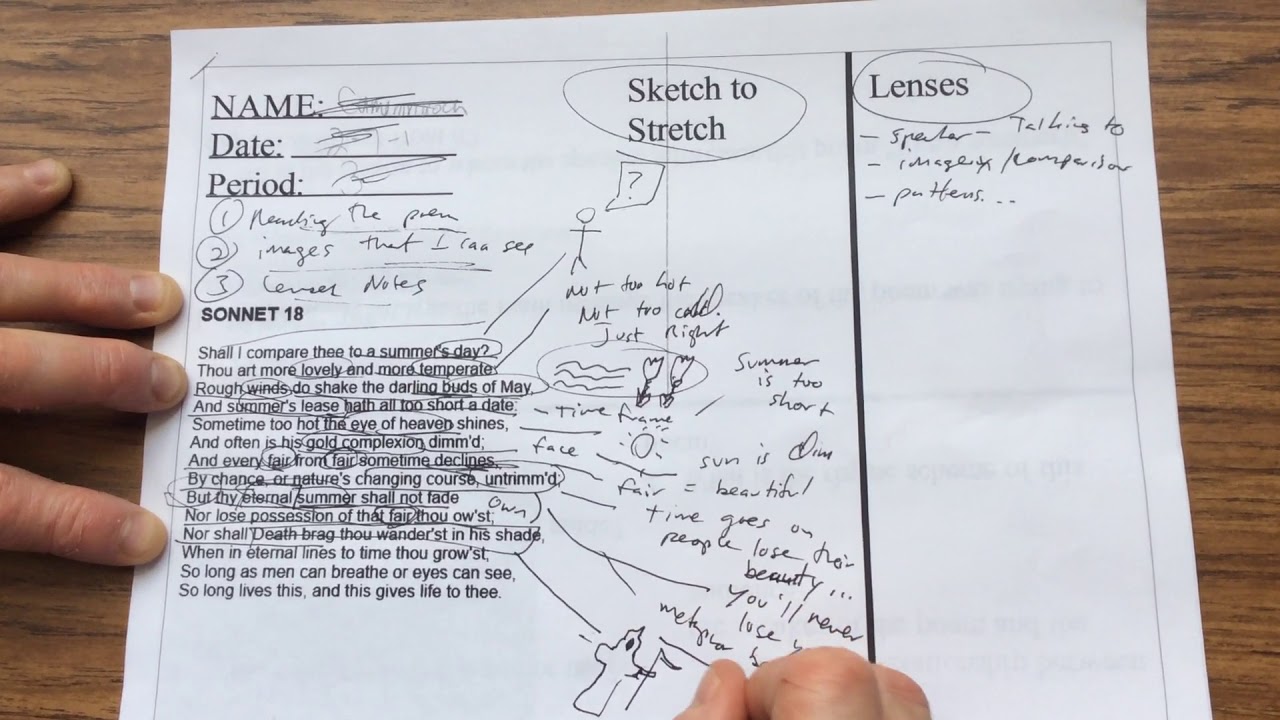 NAME:
Date:
Period:
① Reading the poem
② images that I can see
③ Lenses Notes
SONNET 18
Shall I compare thee to a summer's day?
Thou art more lovely and more temperate:
Rough winds do shake the darling buds of May,
And summer's lease hath all too short a date:
Sometime too hot the eye of heaven shines,
And often is his gold complexion dimm'd;
And every fair from fair sometime declines,
By chance, or nature's changing course, untrimm'd;
But thy eternal summer shall not fade
Nor lose possession of that fair thou ow'st;
own
Nor shall Death brag thou wander'st in his shade,
When in eternal lines to time thou grow'st;
So long as men can breathe or eyes can see,
So long lives this, and this gives life to thee.
Sketch to
Stretch
?
Not too hot
Not too cold.
Just Right
Summer
is too
short
- Time frame
face
sun is Dim
fair = beautiful
time goes on
people lose their
beauty...
You'll never
lose
metaphor
Lenses
- speaker - Talking to
- imagery/comparison
- patterns...